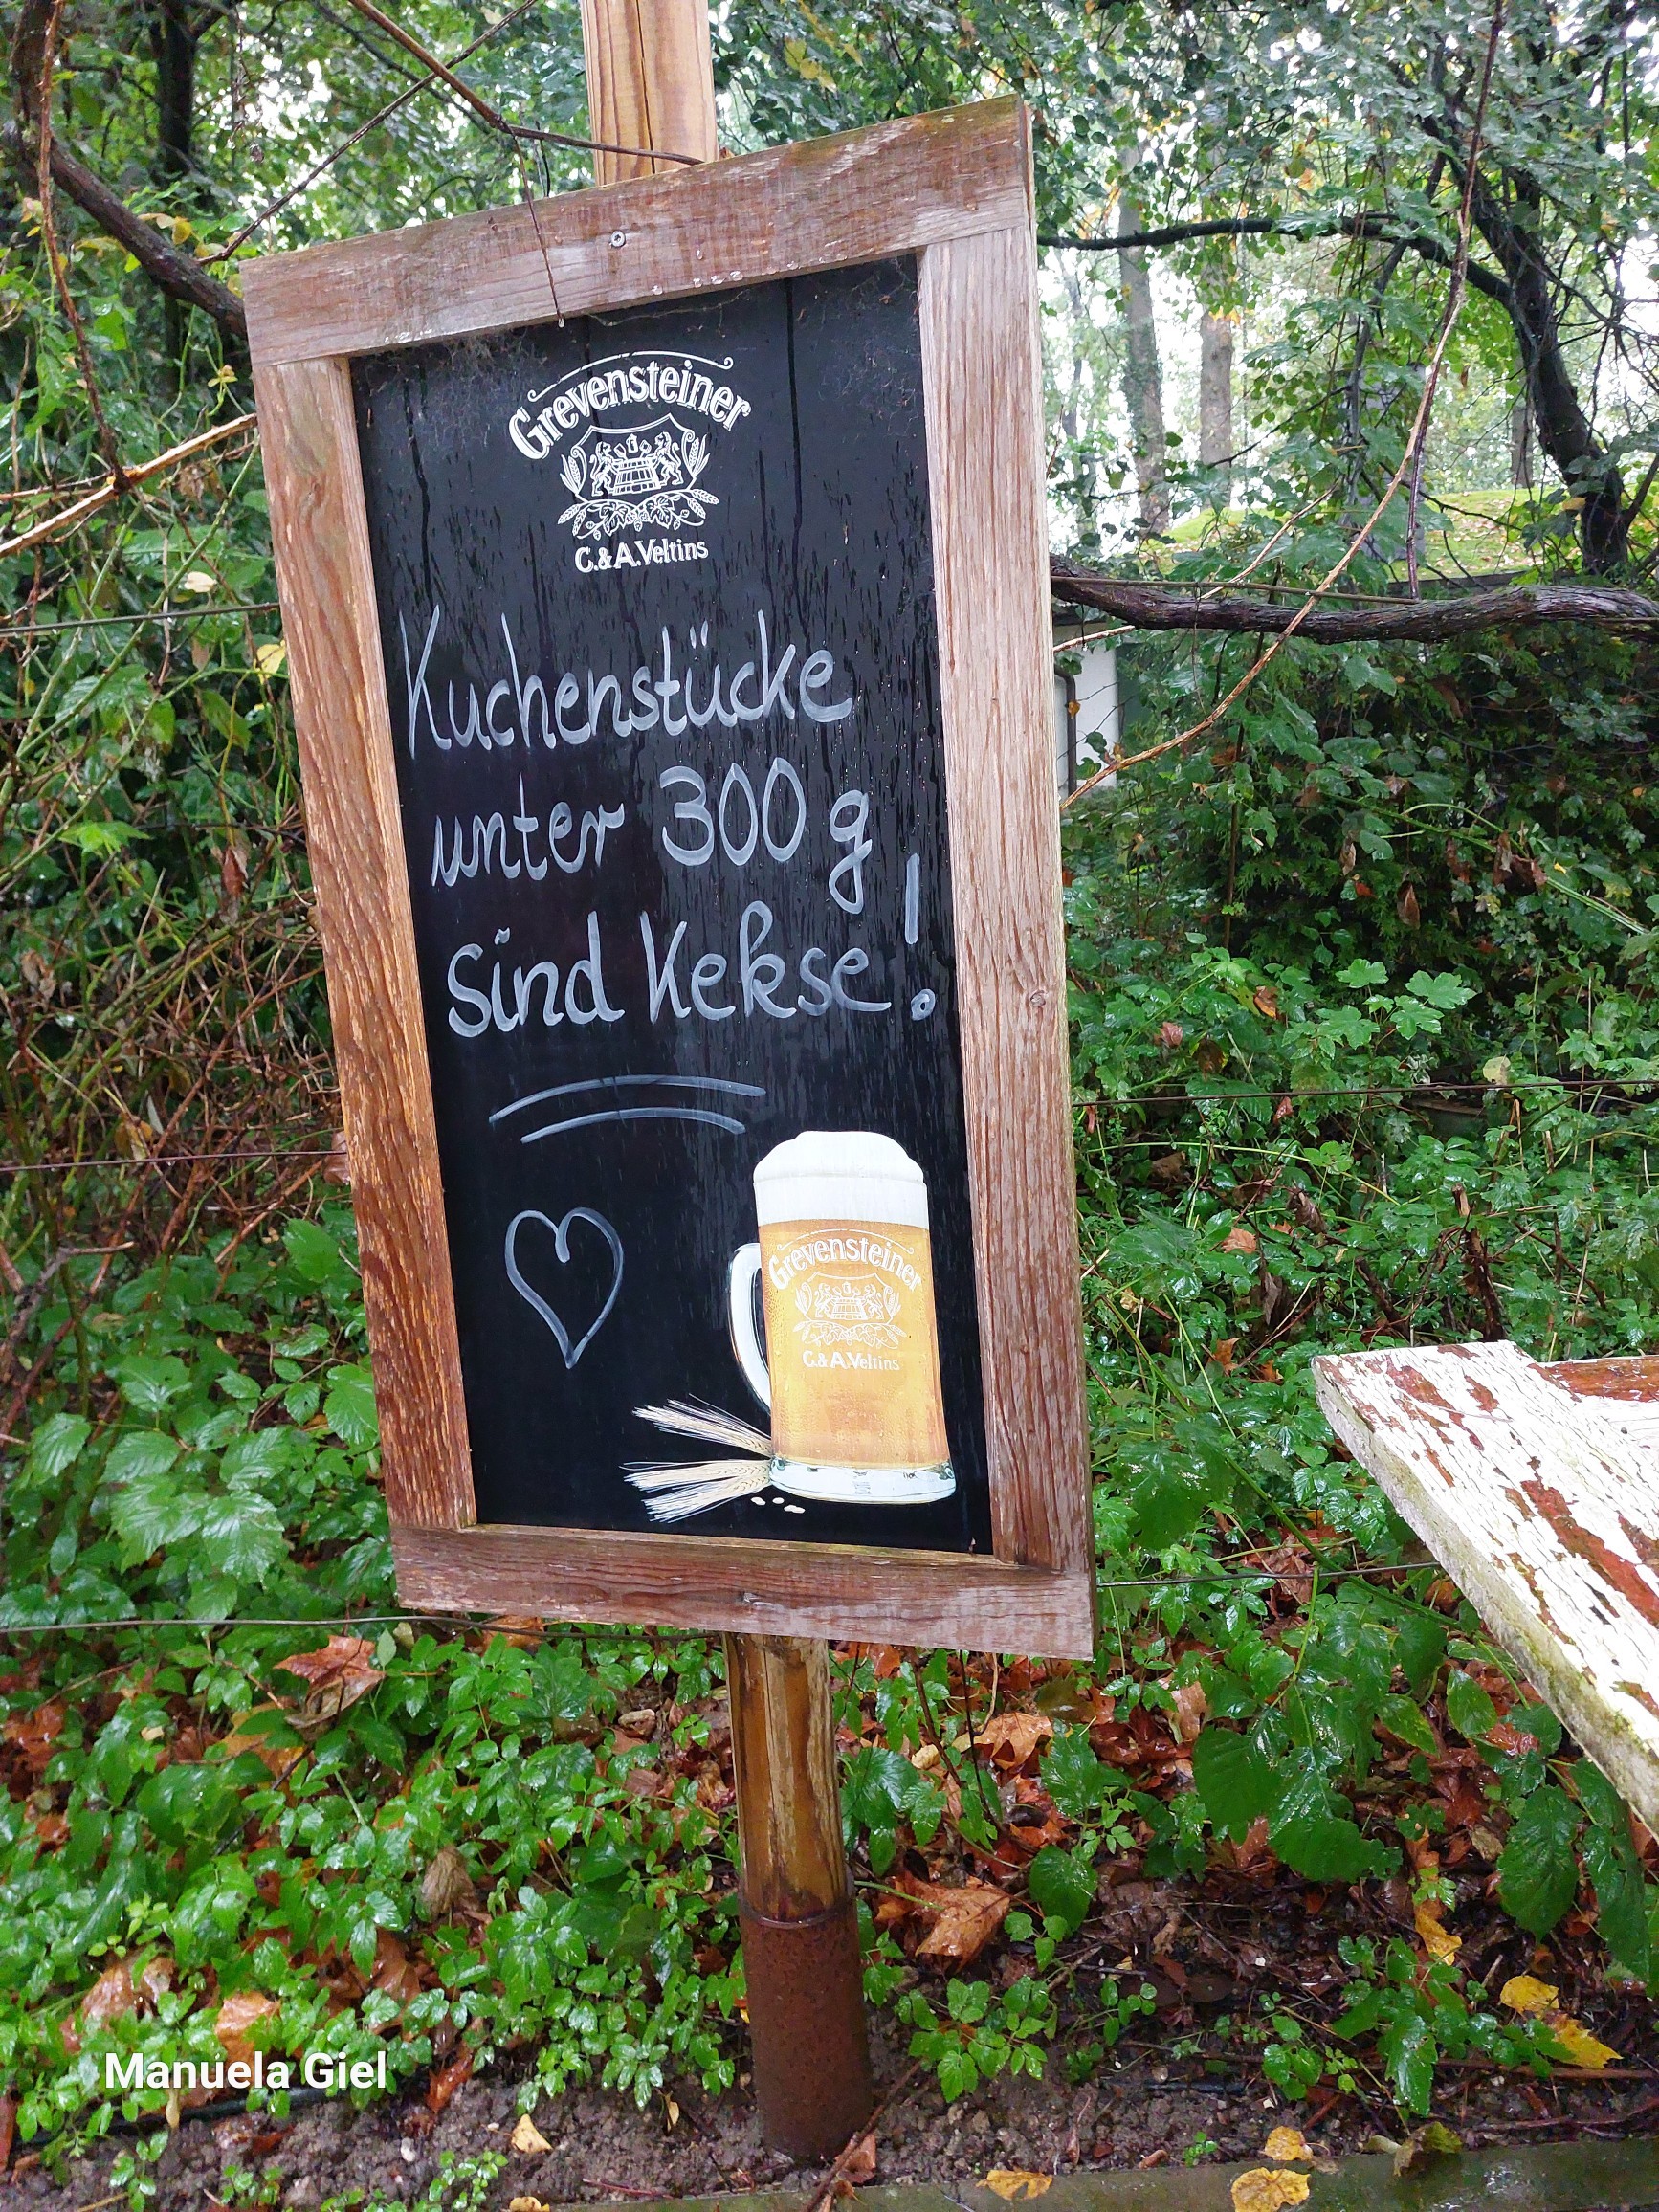 Grevensteiner
C.&A.Veltins
Kuchenstücke
unter 300 g
sind Kekse!
Grevensteiner
C.&A.Veltins
Manuela Giel